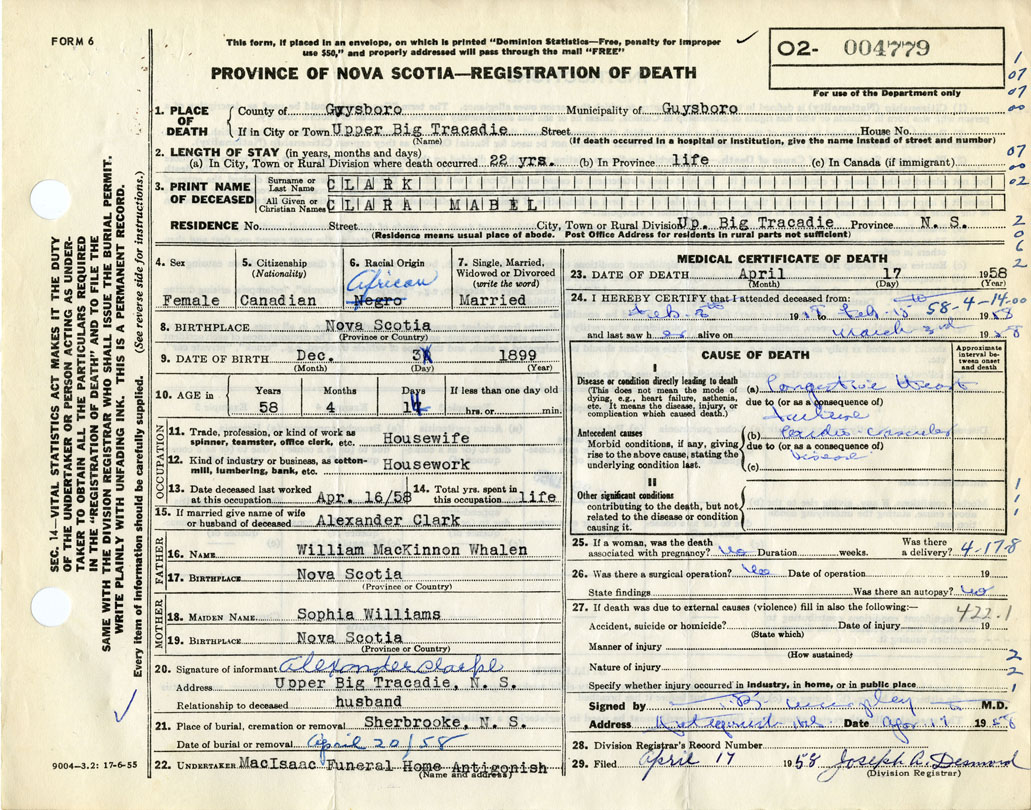 FORM 6
This form, if placed in an envelope, on which is printed "Dominion Statistics—Free, penalty for improper
use $50," and properly addressed will pass through the mail "FREE"
02- 004779
For use of the Department only
PROVINCE OF NOVA SCOTIA—REGISTRATION OF DEATH
1. PLACE OF DEATH County of Guysboro Municipality of Guysboro
If in City or Town Upper Big Tracadie Street House No.
(Name) (If death occurred in a hospital or institution, give the name instead of street and number)
2. LENGTH OF STAY (in years, months and days)
(a) In City, Town or Rural Division where death occurred 22 yrs. (b) In Province life (c) In Canada (if immigrant)
3. PRINT NAME OF DECEASED
Surname or Last Name CLARK
All Given or Christian Names CLARA MABEL
RESIDENCE No. Street City, Town or Rural Division Up. Big Tracadie Province N. S.
(Residence means usual place of abode. Post Office Address for residents in rural parts not sufficient)
SEC. 14—VITAL STATISTICS ACT MAKES IT THE DUTY
OF THE UNDERTAKER OR PERSON ACTING AS UNDER-
TAKER TO OBTAIN ALL THE PARTICULARS REQUIRED
IN THE "REGISTRATION OF DEATH" AND TO FILE THE
SAME WITH THE DIVISION REGISTRAR WHO SHALL ISSUE THE BURIAL PERMIT.
WRITE PLAINLY WITH UNFADING INK. THIS IS A PERMANENT RECORD.
Every item of information should be carefully supplied. (See reverse side for instructions.)
4. Sex
Female
5. Citizenship
(Nationality)
Canadian
6. Racial Origin
African
Negro
7. Single, Married,
Widowed or Divorced
(write the word)
Married
8. BIRTHPLACE Nova Scotia
(Province or Country)
9. DATE OF BIRTH Dec. 3 1899
(Month) (Day) (Year)
10. AGE in
Years Months Days If less than one day old
58 4 14 hrs. or min.
OCCUPATION
11. Trade, profession, or kind of work as
spinner, teamster, office clerk, etc. Housewife
12. Kind of industry or business, as cotton-
mill, lumbering, bank, etc. Housework
13. Date deceased last worked
at this occupation Apr. 16/58
14. Total yrs. spent in
this occupation life
15. If married give name of wife
or husband of deceased Alexander Clark
FATHER
16. NAME William MacKinnon Whalen
17. BIRTHPLACE Nova Scotia
(Province or Country)
MOTHER
18. MAIDEN NAME Sophia Williams
19. BIRTHPLACE Nova Scotia
(Province or Country)
20. Signature of informant Alexander Clarke
Address Upper Big Tracadie, N. S.
Relationship to deceased husband
21. Place of burial, cremation or removal Sherbrooke, N. S.
Date of burial or removal April 20/58
22. UNDERTAKER MacIsaac Funeral Home Antigonish
(Name and address)
9004—3.2: 17-6-55
MEDICAL CERTIFICATE OF DEATH
23. DATE OF DEATH April 17 1958
(Month) (Day)
24. I HEREBY CERTIFY that I attended deceased from: 58-4-14-00
Feb. 8th 19 to Feb. 15th 1958
and last saw her alive on March 3rd 1958
CAUSE OF DEATH
Approximate
interval be-
tween onset
and death
I
Disease or condition directly leading to death
(This does not mean the mode of
dying, e.g., heart failure, asthenia,
etc. It means the disease, injury, or
complication which caused death.)
(a) Congestive Heart
due to (or as a consequence of)
failure
Antecedent causes
Morbid conditions, if any, giving
rise to the above cause, stating the
underlying condition last.
(b) Cardio-vascular
due to (or as a consequence of)
Disease
(c)
II
Other significant conditions
contributing to the death, but not
related to the disease or condition
causing it.
25. If a woman, was the death
associated with pregnancy? No Duration weeks. Was there
a delivery? 4-17-8
26. Was there a surgical operation? No Date of operation 19
State findings Was there an autopsy? No
27. If death was due to external causes (violence) fill in also the following:—
422.1
Accident, suicide or homicide? Date of injury 19
(State which)
Manner of injury
(How sustained)
Nature of injury
Specify whether injury occurred in industry, in home, or in public place
Signed by M.D.
Address Antigonish NS Date Apr 19 1958
28. Division Registrar's Record Number
29. Filed April 17 1958 Joseph A. Desmond
(Division Registrar)
1
07
07
00
07
00
02
2
0
6
2
1
1
1
2
2
1